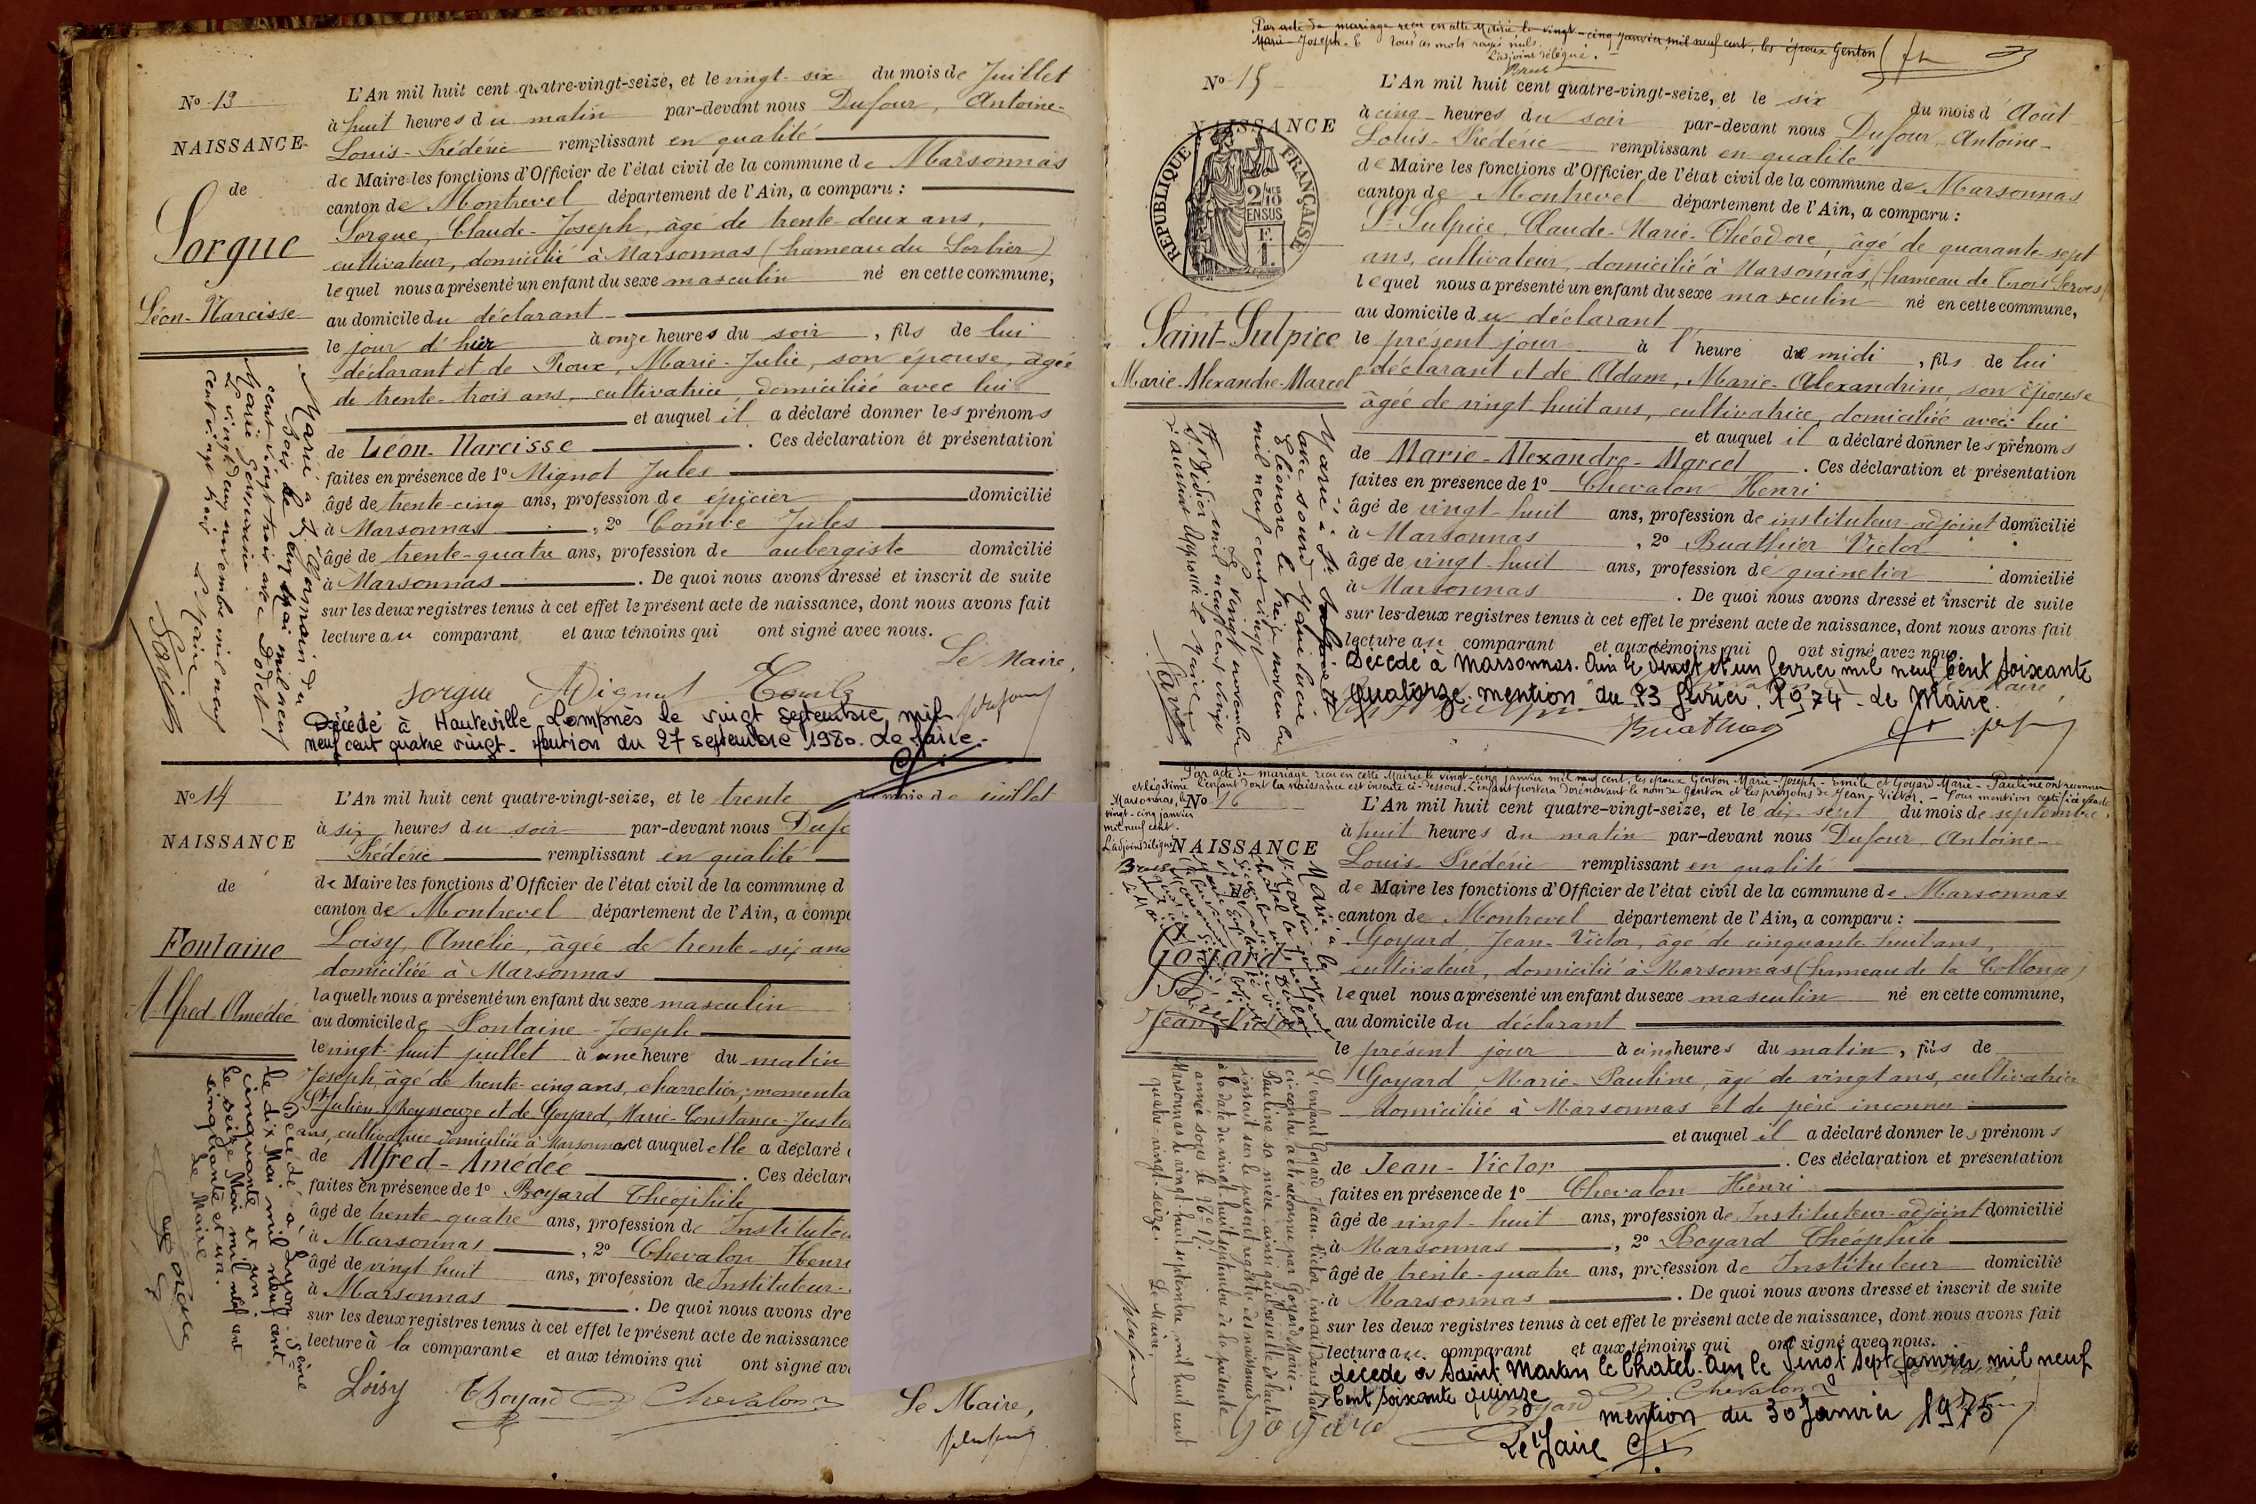 Nº 13
NAISSANCE
de
Sorgue
Léon-Narcisse
L'An mil huit cent quatre-vingt-seize, et le vingt-six du mois de Juillet
à huit heures du matin par-devant nous Dufour, Antoine-
Louis-Frédéric remplissant en qualité
de Maire les fonctions d'Officier de l'état civil de la commune de Marsonnas
canton de Montrevel département de l'Ain, a comparu :
Sorgue, Claude-Joseph, âgé de trente-deux ans,
cultivateur, domicilié à Marsonnas (hameau du Sorbier)
lequel nous a présenté un enfant du sexe masculin né en cette commune,
au domicile du déclarant
le jour d'hier à onze heures du soir, fils de lui
déclarant et de Proux, Marie-Julie, son épouse, âgée
de trente-trois ans, cultivatrice, domiciliée avec lui
et auquel il a déclaré donner les prénoms
de Léon-Narcisse. Ces déclaration et présentation
faites en présence de 1º Mignot Jules
âgé de trente-cinq ans, profession de épicier domicilié
à Marsonnas, 2º Combe Jules
âgé de trente-quatre ans, profession de aubergiste domicilié
à Marsonnas. De quoi nous avons dressé et inscrit de suite
sur les deux registres tenus à cet effet le présent acte de naissance, dont nous avons fait
lecture au comparant et aux témoins qui ont signé avec nous.
Le Maire,
Sorgue Mignot
Décédé à Hauteville Lompnès le vingt septembre mil
neuf cent quatre vingt. Mention du 27 septembre 1980. Le Maire.
Marié à St Germain du
Bois le deux mai mil neuf
cent vingt trois avec Dodet
Marie Germaine.
Le vingt deux novembre mil neuf
cent vingt trois Le Maire
Nº 14
NAISSANCE
de
Fontaine
Alfred-Amédée
L'An mil huit cent quatre-vingt-seize, et le trente mois de juillet
à six heures du soir par-devant nous Dufo
Frédéric remplissant en qualité
de Maire les fonctions d'Officier de l'état civil de la commune d
canton de Montrevel département de l'Ain, a compa
Loisy, Amélie, âgée de trente-six ans
domiciliée à Marsonnas
laquelle nous a présenté un enfant du sexe masculin
au domicile de Fontaine-Joseph
le vingt-huit juillet à une heure du matin
Joseph, âgé de trente-cinq ans, charretier, momenta
St Julien s/Reyssouze et de Goyard, Marie-Constance-Juste
ans, cultivatrice domiciliée à Marsonnas et auquel elle a déclaré
de Alfred-Amédée. Ces déclar
faites en présence de 1º Boyard Théophile
âgé de trente-quatre ans, profession de Instituteu
à Marsonnas, 2º Chevalon Henri
âgé de vingt-huit ans, profession de Instituteur-
à Marsonnas. De quoi nous avons dre
sur les deux registres tenus à cet effet le présent acte de naissance
lecture à la comparante et aux témoins qui ont signé av
Loisy TBoyard Chevalon
Le Maire,
Décédé à Lyon
le dix Mai mil neuf cent
cinquante et un.
le seize Mai mil neuf cent
cinquante et un.
Le Maire
Par acte de mariage reçu en cette Mairie le vingt-cinq janvier mil neuf cent, les époux Genton
Marie-Joseph-E tous ces mots rayés nuls.
L'adjoint délégué.
Nº 15
NAISSANCE
REPUBLIQUE FRANÇAISE
2/10 EN SUS
F.
1.
Saint-Sulpice
Marie-Alexandre-Marcel
L'An mil huit cent quatre-vingt-seize, et le six du mois d'Août
à cinq heures du soir par-devant nous Dufour, Antoine-
Louis-Frédéric remplissant en qualité
de Maire les fonctions d'Officier de l'état civil de la commune de Marsonnas
canton de Montrevel département de l'Ain, a comparu :
St-Sulpice, Claude-Marie-Théodore, âgé de quarante-sept
ans, cultivateur, domicilié à Marsonnas, (hameau de Trois Serves)
lequel nous a présenté un enfant du sexe masculin né en cette commune,
au domicile du déclarant
le présent jour à l'heure de midi, fils de lui
déclarant et de Adam, Marie-Alexandrine, son épouse
âgée de vingt-huit ans, cultivatrice, domiciliée avec lui
et auquel il a déclaré donner les prénoms
de Marie-Alexandre-Marcel. Ces déclaration et présentation
faites en présence de 1º Chevalon Henri
âgé de vingt-huit ans, profession de instituteur-adjoint domicilié
à Marsonnas, 2º Buathier Victor
âgé de vingt-huit ans, profession de grainetier domicilié
à Marsonnas. De quoi nous avons dressé et inscrit de suite
sur les deux registres tenus à cet effet le présent acte de naissance, dont nous avons fait
lecture au comparant et aux témoins qui ont signé avec nous.
Décédé à Marsonnas. Ain le vingt et un fevrier mil neuf cent soixante
quatorze. mention du 23 fevrier 1974. Le Maire.
Buathier
Marié à St Sulpice
le treize novembre
mil neuf cent vingt
Le vingt novembre
mil neuf cent vingt
Le Maire
Par acte de mariage reçu en cette Mairie le vingt-cinq janvier mil neuf cent, les époux Genton-Marie-Joseph-Emile et Goyard Marie-Pauline ont reconnu
et légitimé l'enfant dont la naissance est inscrite ci-dessous. L'enfant portera dorénavant le nom de Genton et les prénoms de Jean-Victor. - Pour mention certifiée exacte.
Marsonnas, le
vingt-cinq janvier
mil neuf cent.
L'adjoint délégué
Nº 16
NAISSANCE
de
Goyard
Jean-Victor
L'An mil huit cent quatre-vingt-seize, et le dix-sept du mois de septembre
à huit heures du matin par-devant nous Dufour, Antoine-
Louis-Frédéric remplissant en qualité
de Maire les fonctions d'Officier de l'état civil de la commune de Marsonnas
canton de Montrevel département de l'Ain, a comparu :
Goyard, Jean-Victor, âgé de cinquante-huit ans,
cultivateur, domicilié à Marsonnas (hameau de la Collonge)
lequel nous a présenté un enfant du sexe masculin né en cette commune,
au domicile du déclarant
le présent jour à cinq heures du matin, fils de
Goyard, Marie-Pauline, âgé de vingt ans, cultivatrice
domiciliée à Marsonnas et de père inconnu
et auquel il a déclaré donner les prénoms
de Jean-Victor. Ces déclaration et présentation
faites en présence de 1º Chevalon Henri
âgé de vingt-huit ans, profession de Instituteur-adjoint domicilié
à Marsonnas, 2º Boyard Théophile
âgé de trente-quatre ans, profession de Instituteur domicilié
à Marsonnas. De quoi nous avons dressé et inscrit de suite
sur les deux registres tenus à cet effet le présent acte de naissance, dont nous avons fait
lecture au comparant et aux témoins qui ont signé avec nous.
décédé à Saint Martin le Chatel. Ain le Vingt Sept Janvier mil neuf
Cent Soixante quinze
mention du 30 Janvier 1975
Le Maire
Goyard Boyard Chevalon
L'enfant Goyard Jean-Victor, inscrit dans l'acte
ci-contre, a été reconnu par Goyard Marie-
Pauline sa mère, ainsi qu'il résulte de l'acte
inscrit sur le présent registre des naissances
à la date du vingt-huit septembre de la présente
année sous le Nº 17.
Marsonnas le vingt-huit septembre mil huit cent
quatre-vingt-seize. Le Maire,